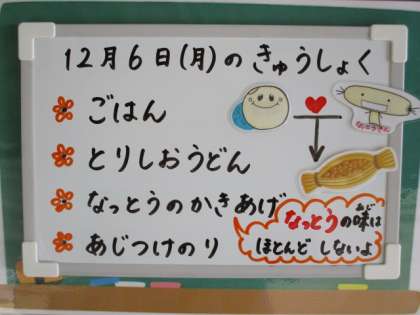 12月6日(月)のきゅうしょく
ごはん
とりしおうどん
なっとうのかきあげ
あじつけのり
なっとうの味は
あじ
ほとんど しないよ